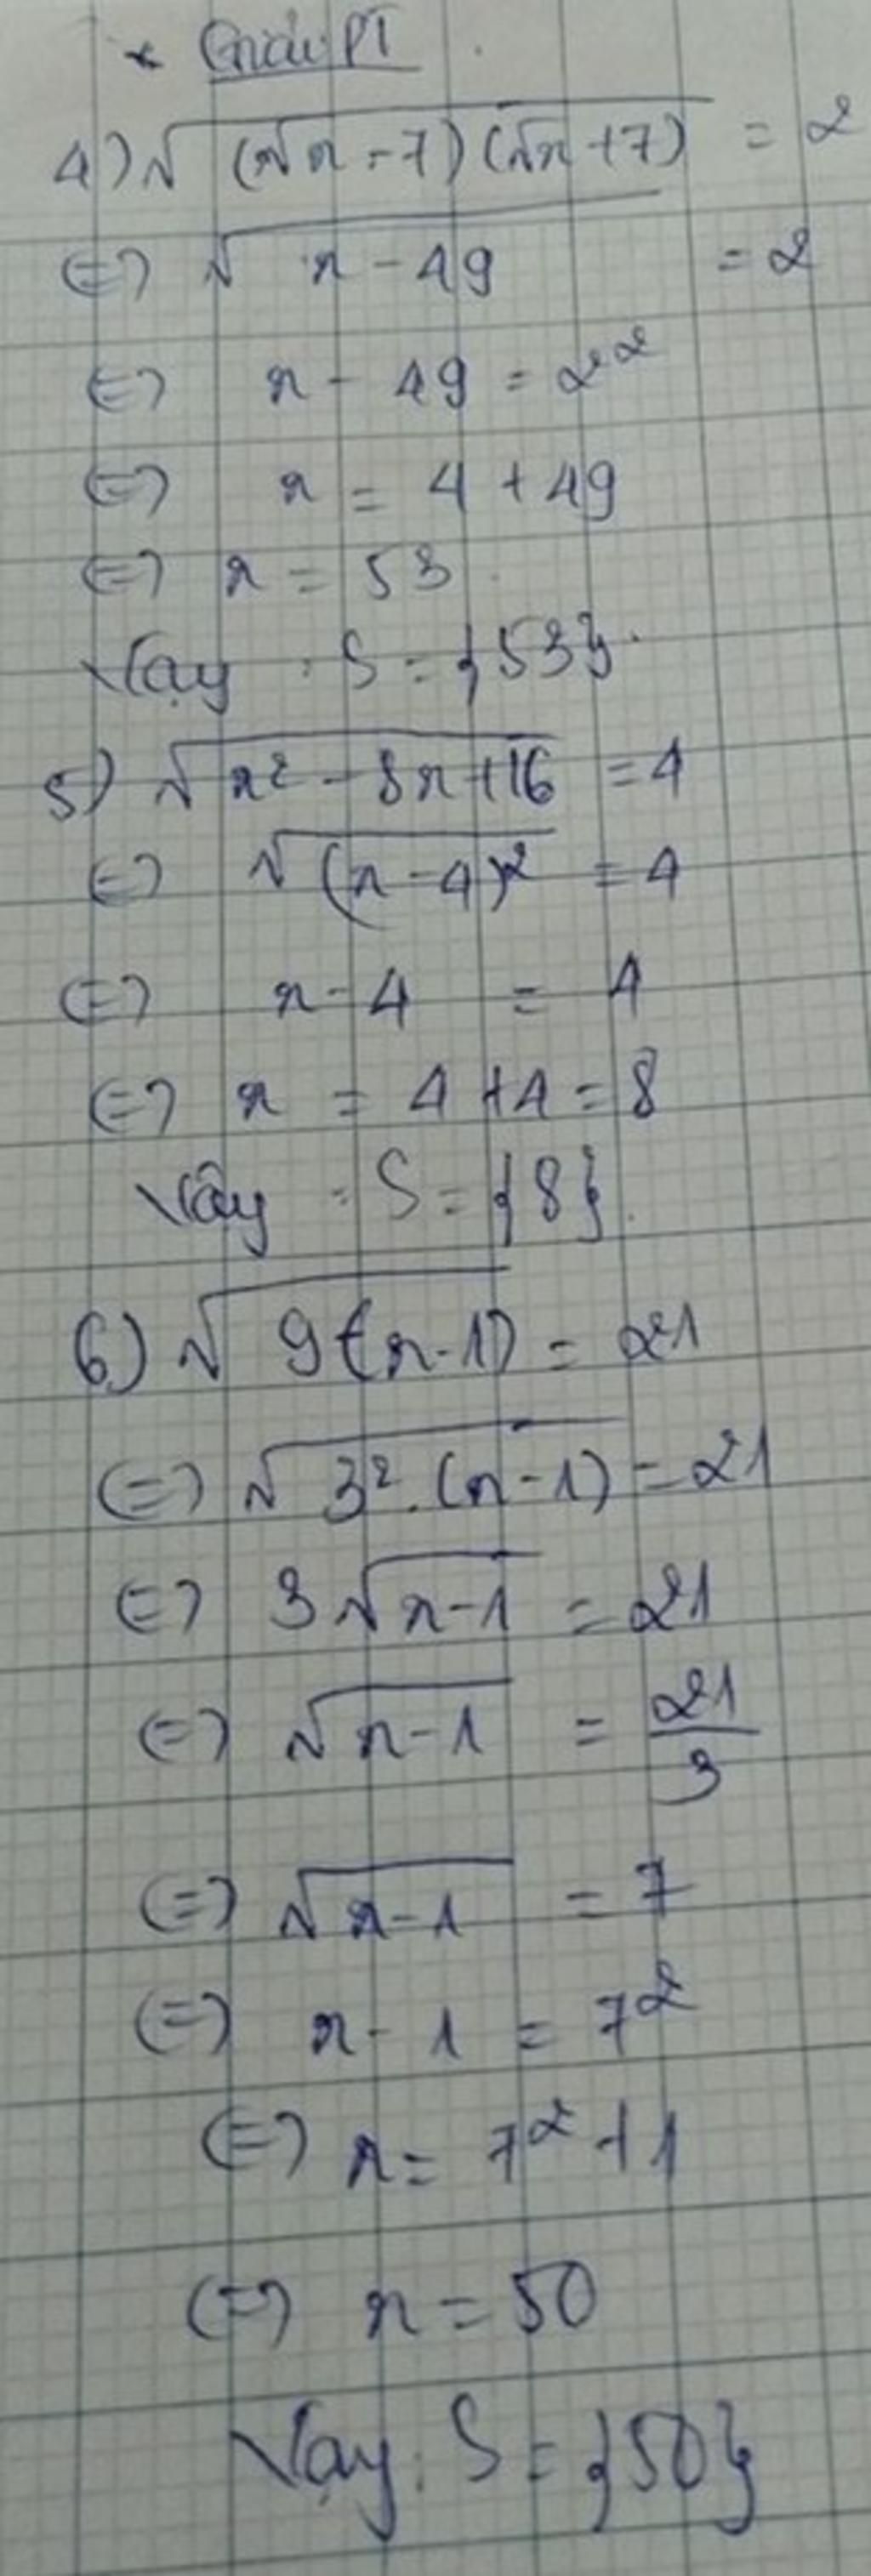 * Giải PT
4) √(√x - 7)(√x + 7) = 2
<=> √x - 49 = 2
<=> x - 49 = 2²
<=> x = 4 + 49
<=> x = 53
Vậy : S = {53}.
5) √x² - 8x + 16 = 4
<=> √(x - 4)² = 4
<=> x - 4 = 4
<=> x = 4 + 4 = 8
Vậy : S = {8}.
6) √9(x - 1) = 21
<=> √3².(x - 1) = 21
<=> 3√x - 1 = 21
<=> √x - 1 = 21/3
<=> √x - 1 = 7
<=> x - 1 = 7²
<=> x = 7² + 1
<=> x = 50
Vậy : S = {50}